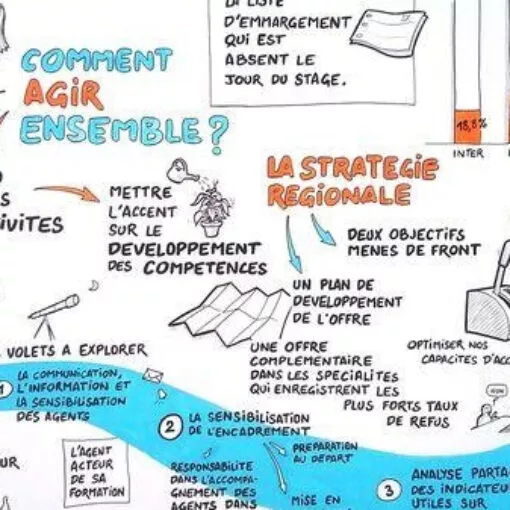 LA LISTE
D'EMMARGEMENT
QUI EST
ABSENT LE
JOUR DU STAGE.
COMMENT
AGIR
ENSEMBLE?
18,8%
INTER
LA STRATEGIE
REGIONALE
METTRE
L'ACCENT
SUR LE
DEVELOPPEMENT
DES COMPETENCES
DEUX OBJECTIFS
MENES DE FRONT
UN PLAN DE
DEVELOPPEMENT
DE L'OFFRE
UNE OFFRE
COMPLEMENTAIRE
DANS LES SPECIALITES
QUI ENREGISTRENT LES
PLUS FORTS TAUX
DE REFUS
OPTIMISER NOS
CAPACITES D'ACC
VOLETS A EXPLORER
1 LA COMMUNICATION,
L'INFORMATION ET
LA SENSIBILISATION
DES AGENTS
2 LA SENSIBILISATION
DE L'ENCADREMENT
PREPARATION
AU DEPART
L'AGENT
ACTEUR
DE SA
FORMATION
RESPONSABILITE
DANS L'ACCOMPA-
GNEMENT DES
AGENTS DANS
MISE EN
3 ANALYSE PARTA
DES INDICATEU
UTILES SUR